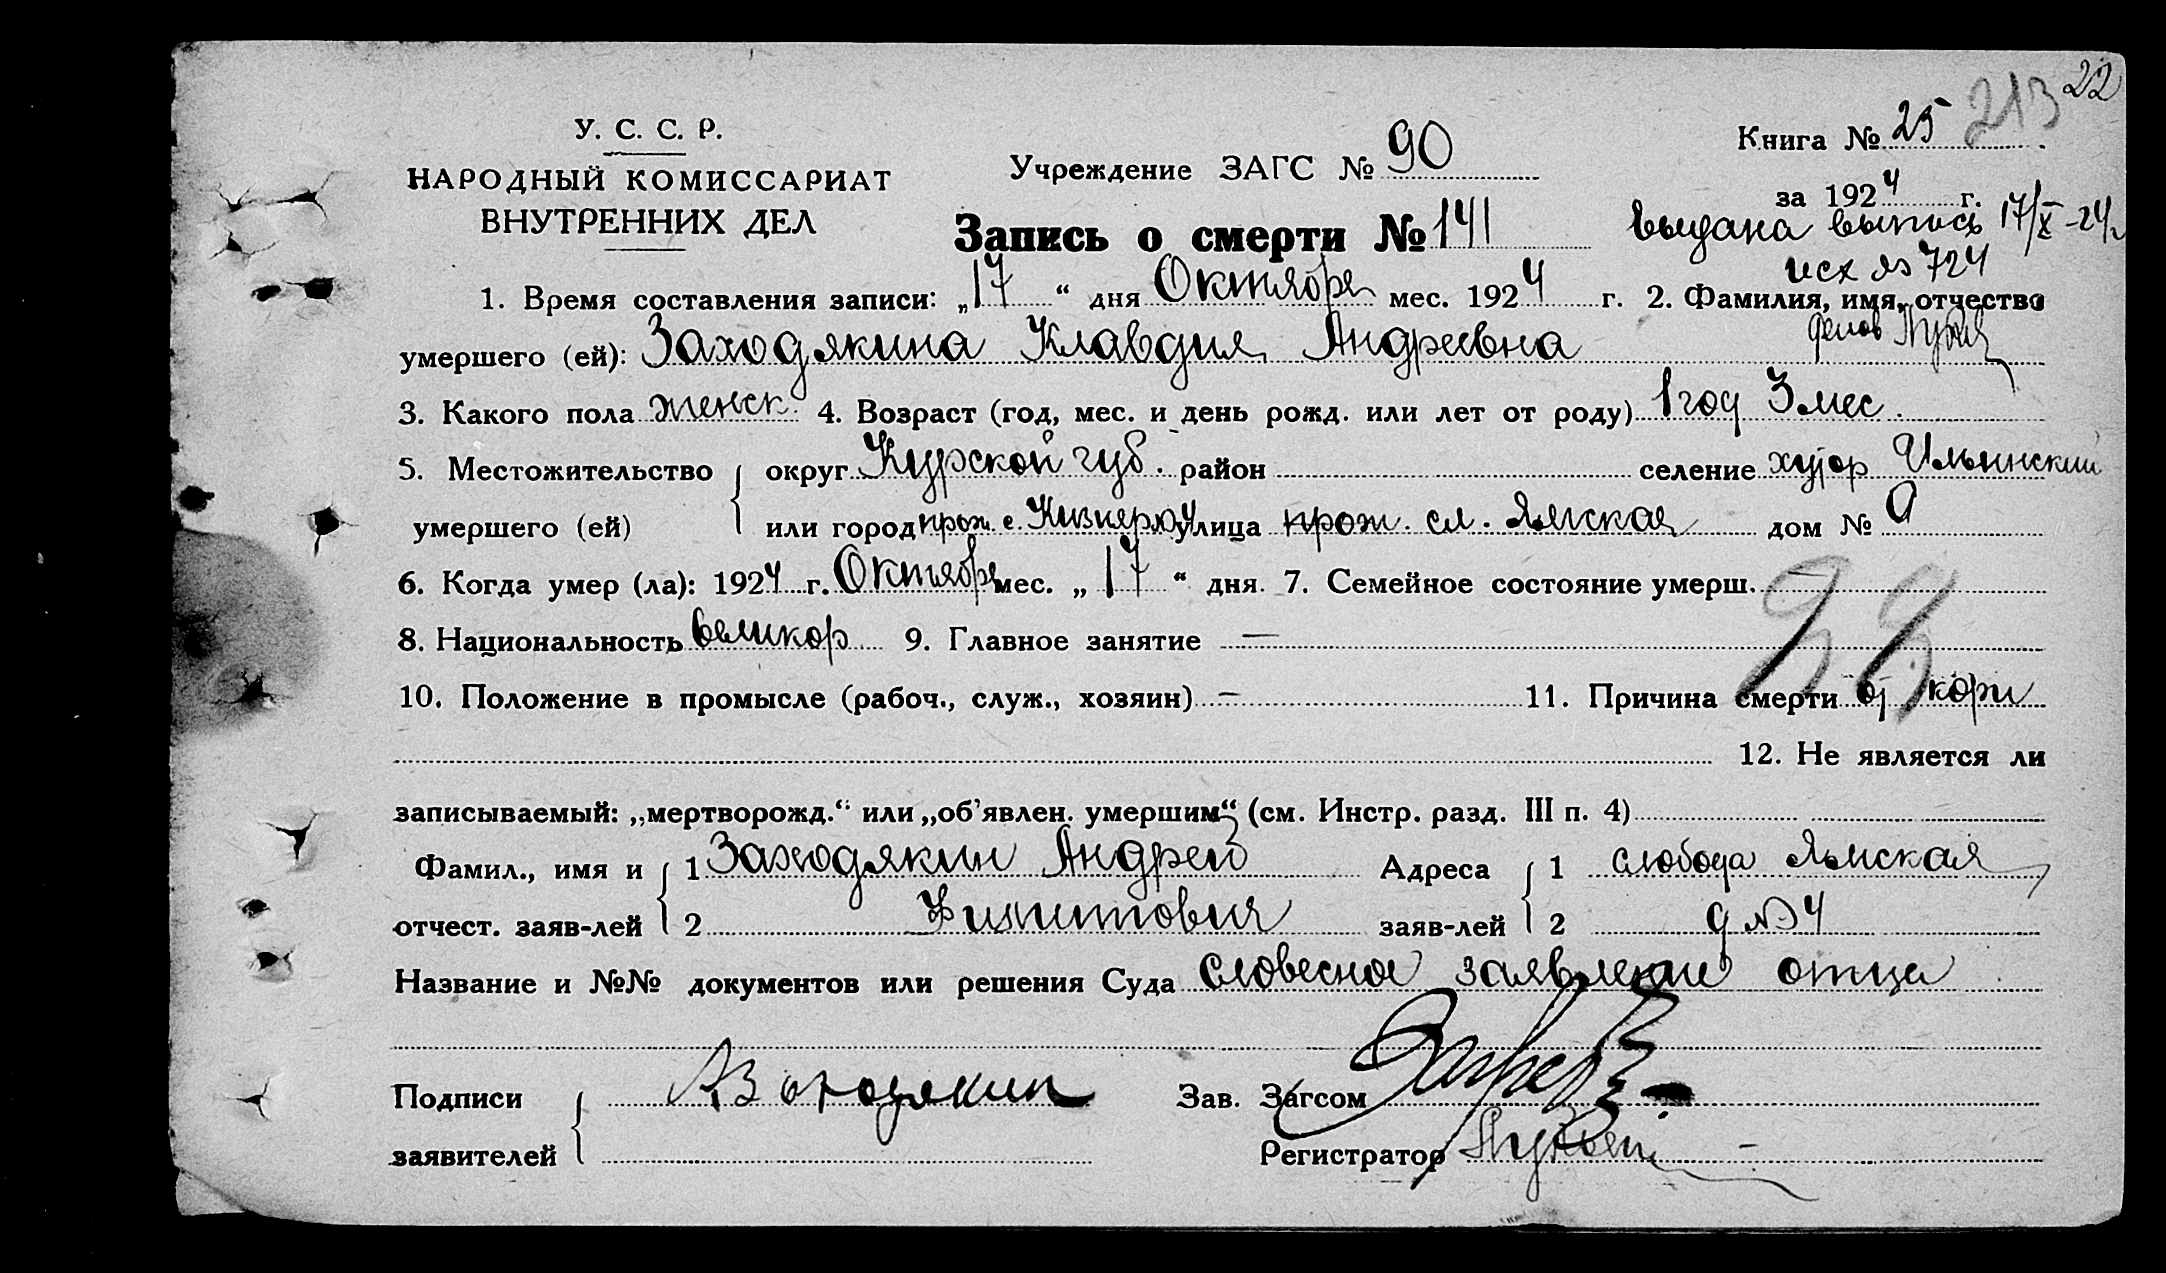 22
213
У. С. С. Р.
НАРОДНЫЙ КОМИССАРИАТ
ВНУТРЕННИХ ДЕЛ
Учреждение ЗАГС № 90
Книга № 25
за 1924 г.
Запись о смерти № 141
выдана выпись 17/X-24г
исх № 724
1. Время составления записи: „17“ дня Октября мес. 1924 г. 2. Фамилия, имя, отчество
умершего (ей): Заходякина Клавдия Андреевна
3. Какого пола женск. 4. Возраст (год, мес. и день рожд. или лет от роду) 1 год 3 мес.
5. Местожительство округ Курской губ. район селение хутор Ильинский
умершего (ей) или город прож. с. улица прож. сл. Ямская дом №
6. Когда умер (ла): 1924 г. Октября мес. „17“ дня. 7. Семейное состояние умерш.
8. Национальность великор. 9. Главное занятие —
10. Положение в промысле (рабоч., служ., хозяин) — 11. Причина смерти от кори
12. Не является ли
записываемый: „мертворожд.“ или „об'явлен. умершим“ (см. Инстр. разд. III п. 4)
Фамил., имя и 1 Заходякин Андрей Адреса 1 слобода Ямская
отчест. заяв-лей 2 заяв-лей 2 д № 4
Название и №№ документов или решения Суда словесное заявление отца
Подписи А Заходякин Зав. Загсом
заявителей Регистратор